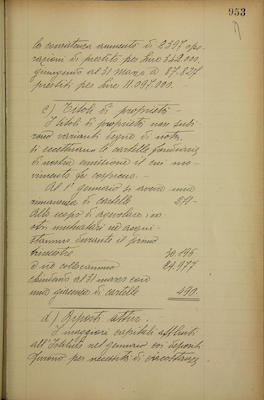 953
la consistenza aumentò di 2397 ope-
razioni di prestito per lire 342.000.
giungendo al 31 Marzo a 87.827
prestiti per lire 11.097.000.
c) Titoli di proprietà -
I titoli di proprietà non subi-
rono varianti degne di nota,
si eccettuano le cartelle fondiarie
di nostra emissione il cui mo-
vimento fu cospicuo -
Al 1° gennaio si aveva una
rimanenza di cartelle
Allo scopo di agevolare i no-
stri mutuatari ne acqui-
stammo durante il primo
trimestre 30.195.
e ne collocammo 29.977
chiudendo al 31 marzo con
una giacenza di cartelle 490.
d) Depositi attivi.
I maggiori capitali affluiti
all'Istituto nel gennaio con depositi
furono per necessità di circostanze